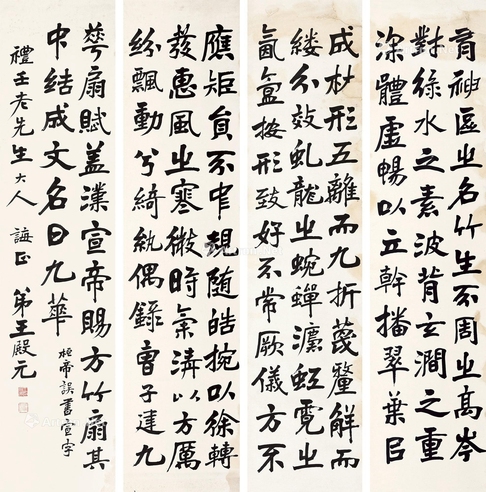 有神區之名竹生不周之高岑
對綠水之素波背玄澗之重
深體虛暢以立幹播翠葉㠯
成材形五離而九折蔑氂解而
縷分效虬龍之蜿蟬灋虹霓之
氤氳按形致好不常厥儀方不
應矩員不中規随皓捥以徐轉
發惠風之寒微時氣清以方厲
紛飄動兮綺紈偶錄曹子建九
華扇賦盖漢宣帝賜方竹扇其
中結成文名曰九華
桓帝誤書宣字
禮壬老先生大人 誨正 弟王殿元